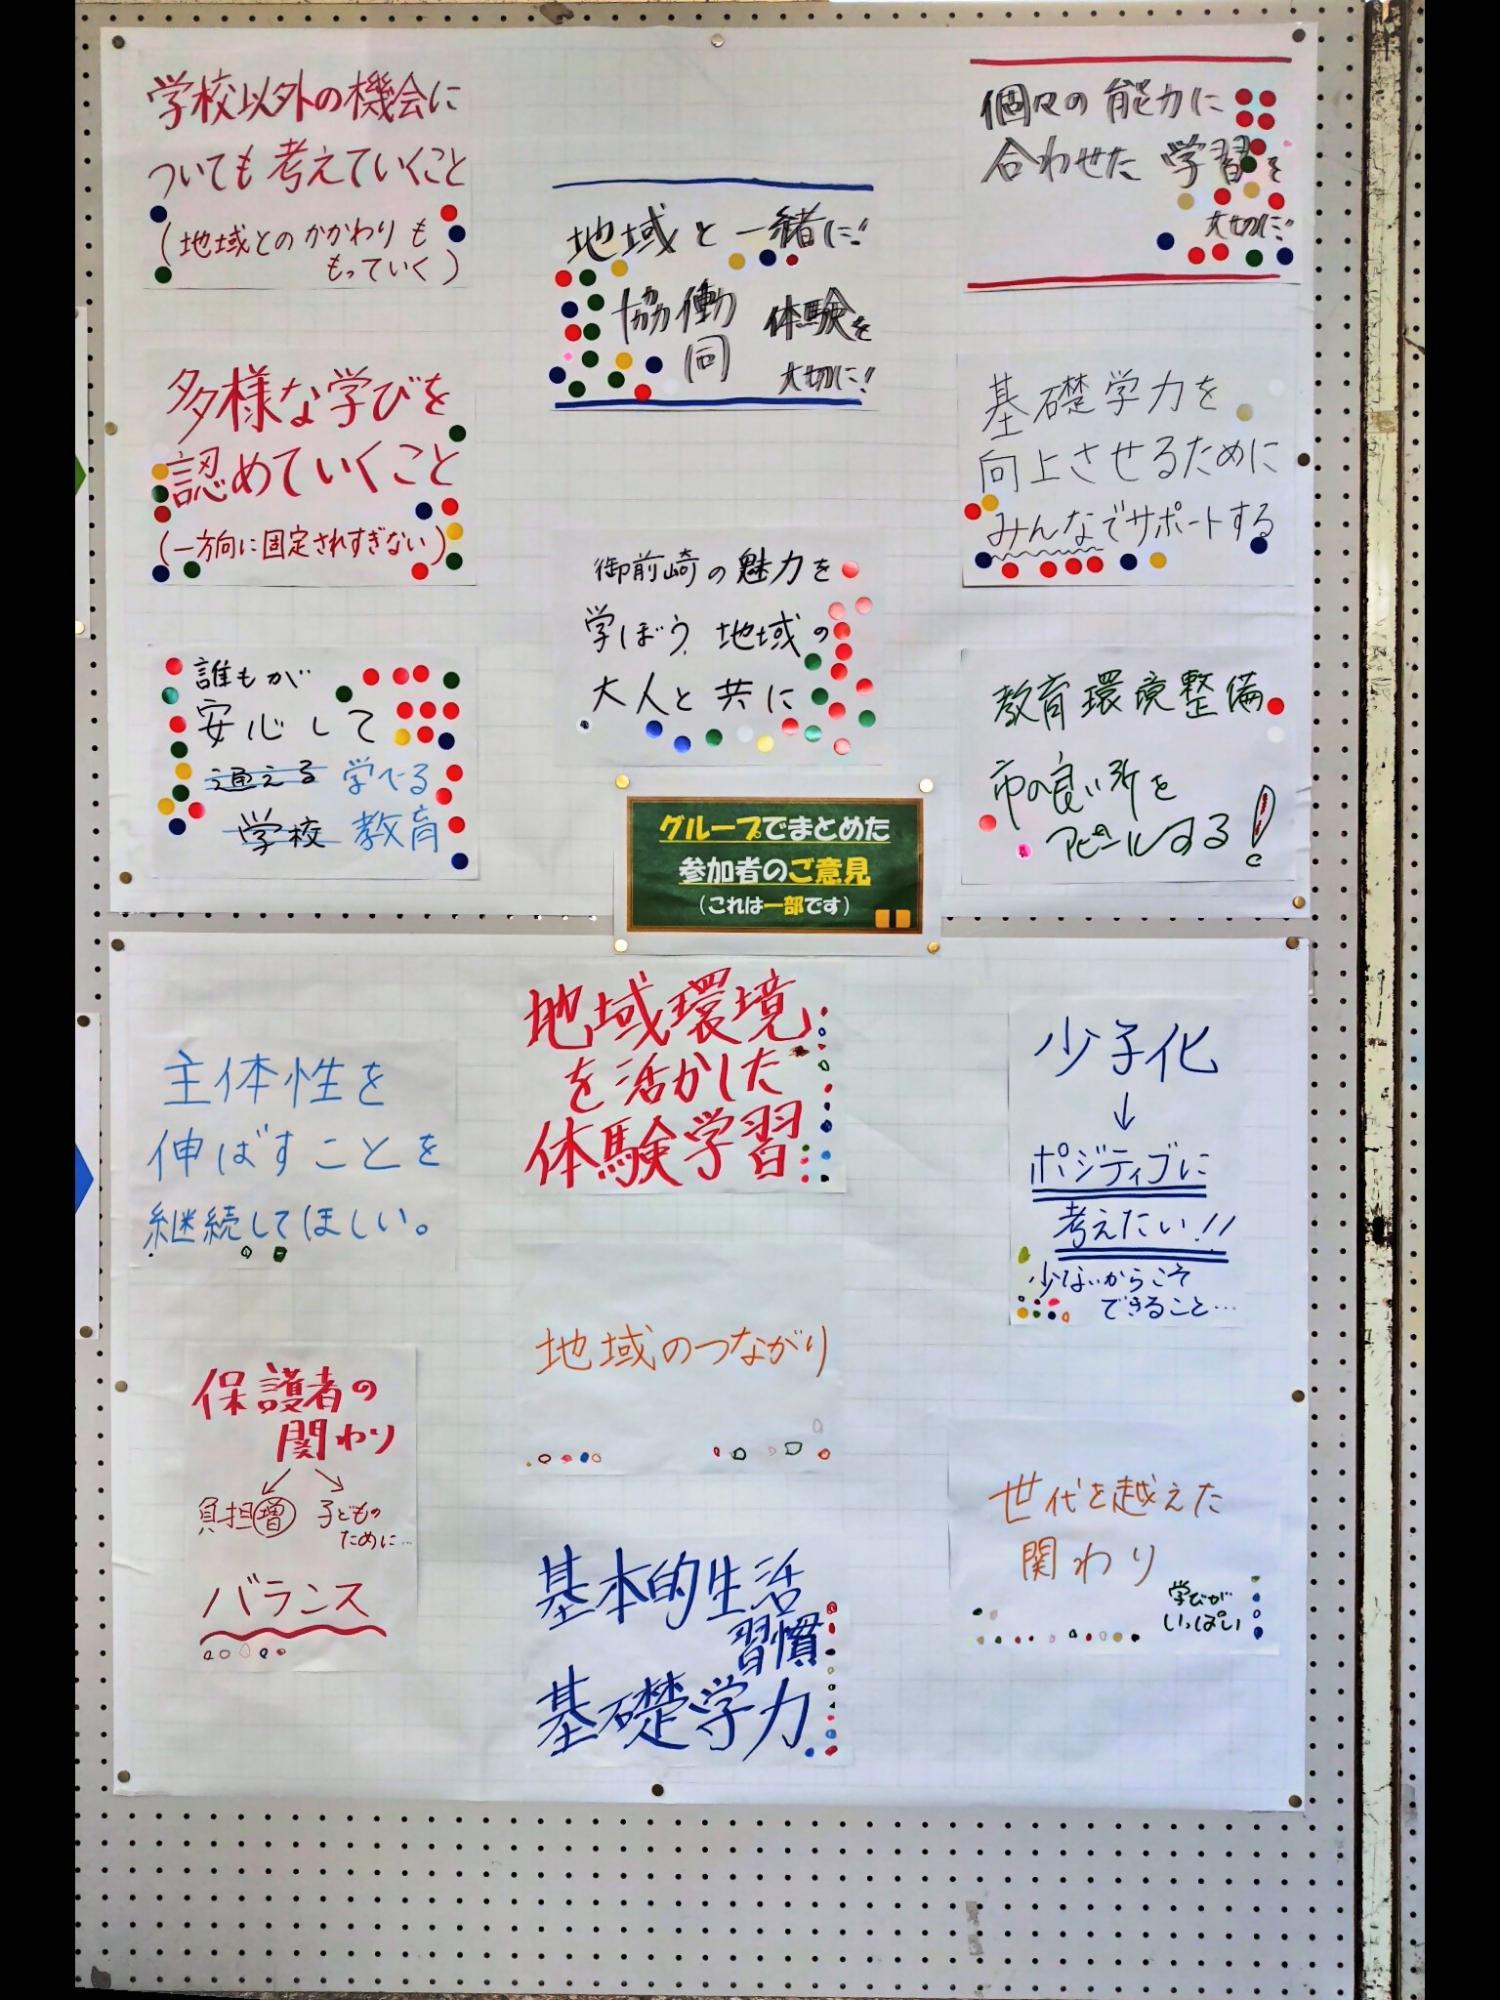 学校以外の機会に
ついても考えていくこと
(地域とのかかわりも
もっていく)
多様な学びを
認めていくこと
(一方向に固定されすぎない)
誰もが
安心して
通える 学べる
学校 教育
地域と一緒に!!
協働 体験を
同 大切に!!
御前崎の魅力を
学ぼう、地域の
大人と共に
個々の能力に
合わせた学習を
大切に!!
基礎学力を
向上させるために
みんなでサポートする
教育環境整備
市の良い所を
アピールする!
グループでまとめた
参加者のご意見
(これは一部です)
主体性を
伸ばすことを
継続してほしい。
保護者の
関わり
負担増 子どもの
ために…
バランス
地域環境
を活かした
体験学習
地域のつながり
基本的生活
習慣
基礎学力
少子化
↓
ポジティブに
考えたい!!
少ないからこそ
できること…
世代を越えた
関わり
学びが
いっぱい